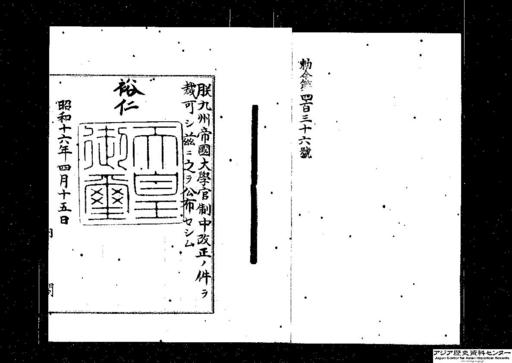 勅令第四百三十六號
朕九州帝國大學官制中改正ノ件ヲ
裁可シ茲ニ之ヲ公布セシム
裕仁
天皇御璽
昭和十六年四月十五日
内閣
アジア歴史資料センター
Japan Center for Asian Historical Records